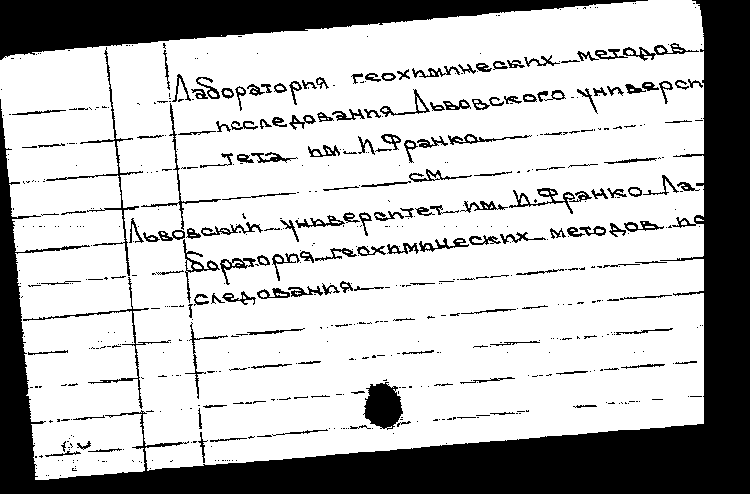 Лаборатория геохимических методов
исследования Львовского универси-
тета им. И. Франко.
см.
Львовский университет им. И. Франко. Ла-
боратория геохимических методов ис
следования.